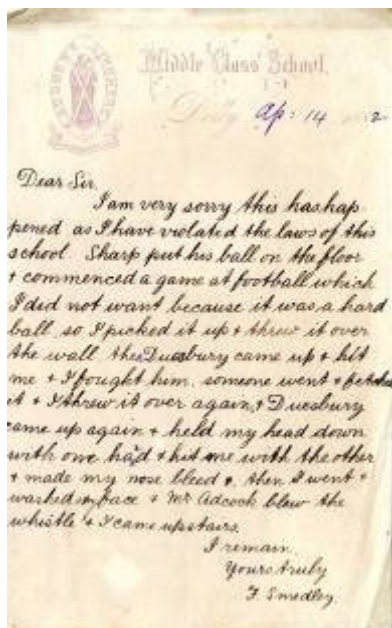 Middle Class School,
Ap: 14
Dear Sir,
I am very sorry this has hap
pened as I have violated the laws of this
school. Sharp put his ball on the floor
+ commenced a game at football which
I did not want because it was a hard
ball so I picked it up + threw it over
the wall, then Duesbury came up + hit
me + I fought him, someone went + fetched
it + I threw it over again, + Duesbury
came up again + held my head down
with one had + hit me with the other
+ made my nose bleed +, then I went +
washed my face + Mr Adcock blew the
whistle + I came upstairs.
I remain.
Yours truly
F. Smedley.